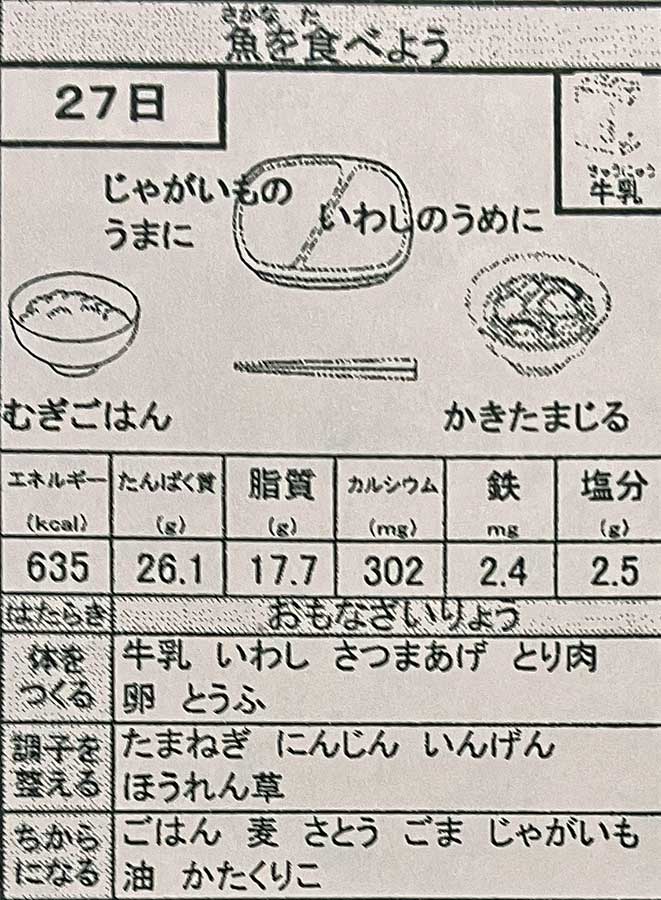 さかな た
魚を食べよう
27日
ぎゅうにゅう
牛乳
じゃがいもの
うまに
いわしのうめに
むぎごはん
かきたまじる
エネルギー たんぱく質 脂質 カルシウム 鉄 塩分
(kcal) (g) (g) (mg) mg (g)
635 26.1 17.7 302 2.4 2.5
はたらき おもなざいりょう
体を
つくる
牛乳 いわし さつまあげ とり肉
卵 とうふ
調子を
整える
たまねぎ にんじん いんげん
ほうれん草
ちから
になる
ごはん 麦 さとう ごま じゃがいも
油 かたくりこ